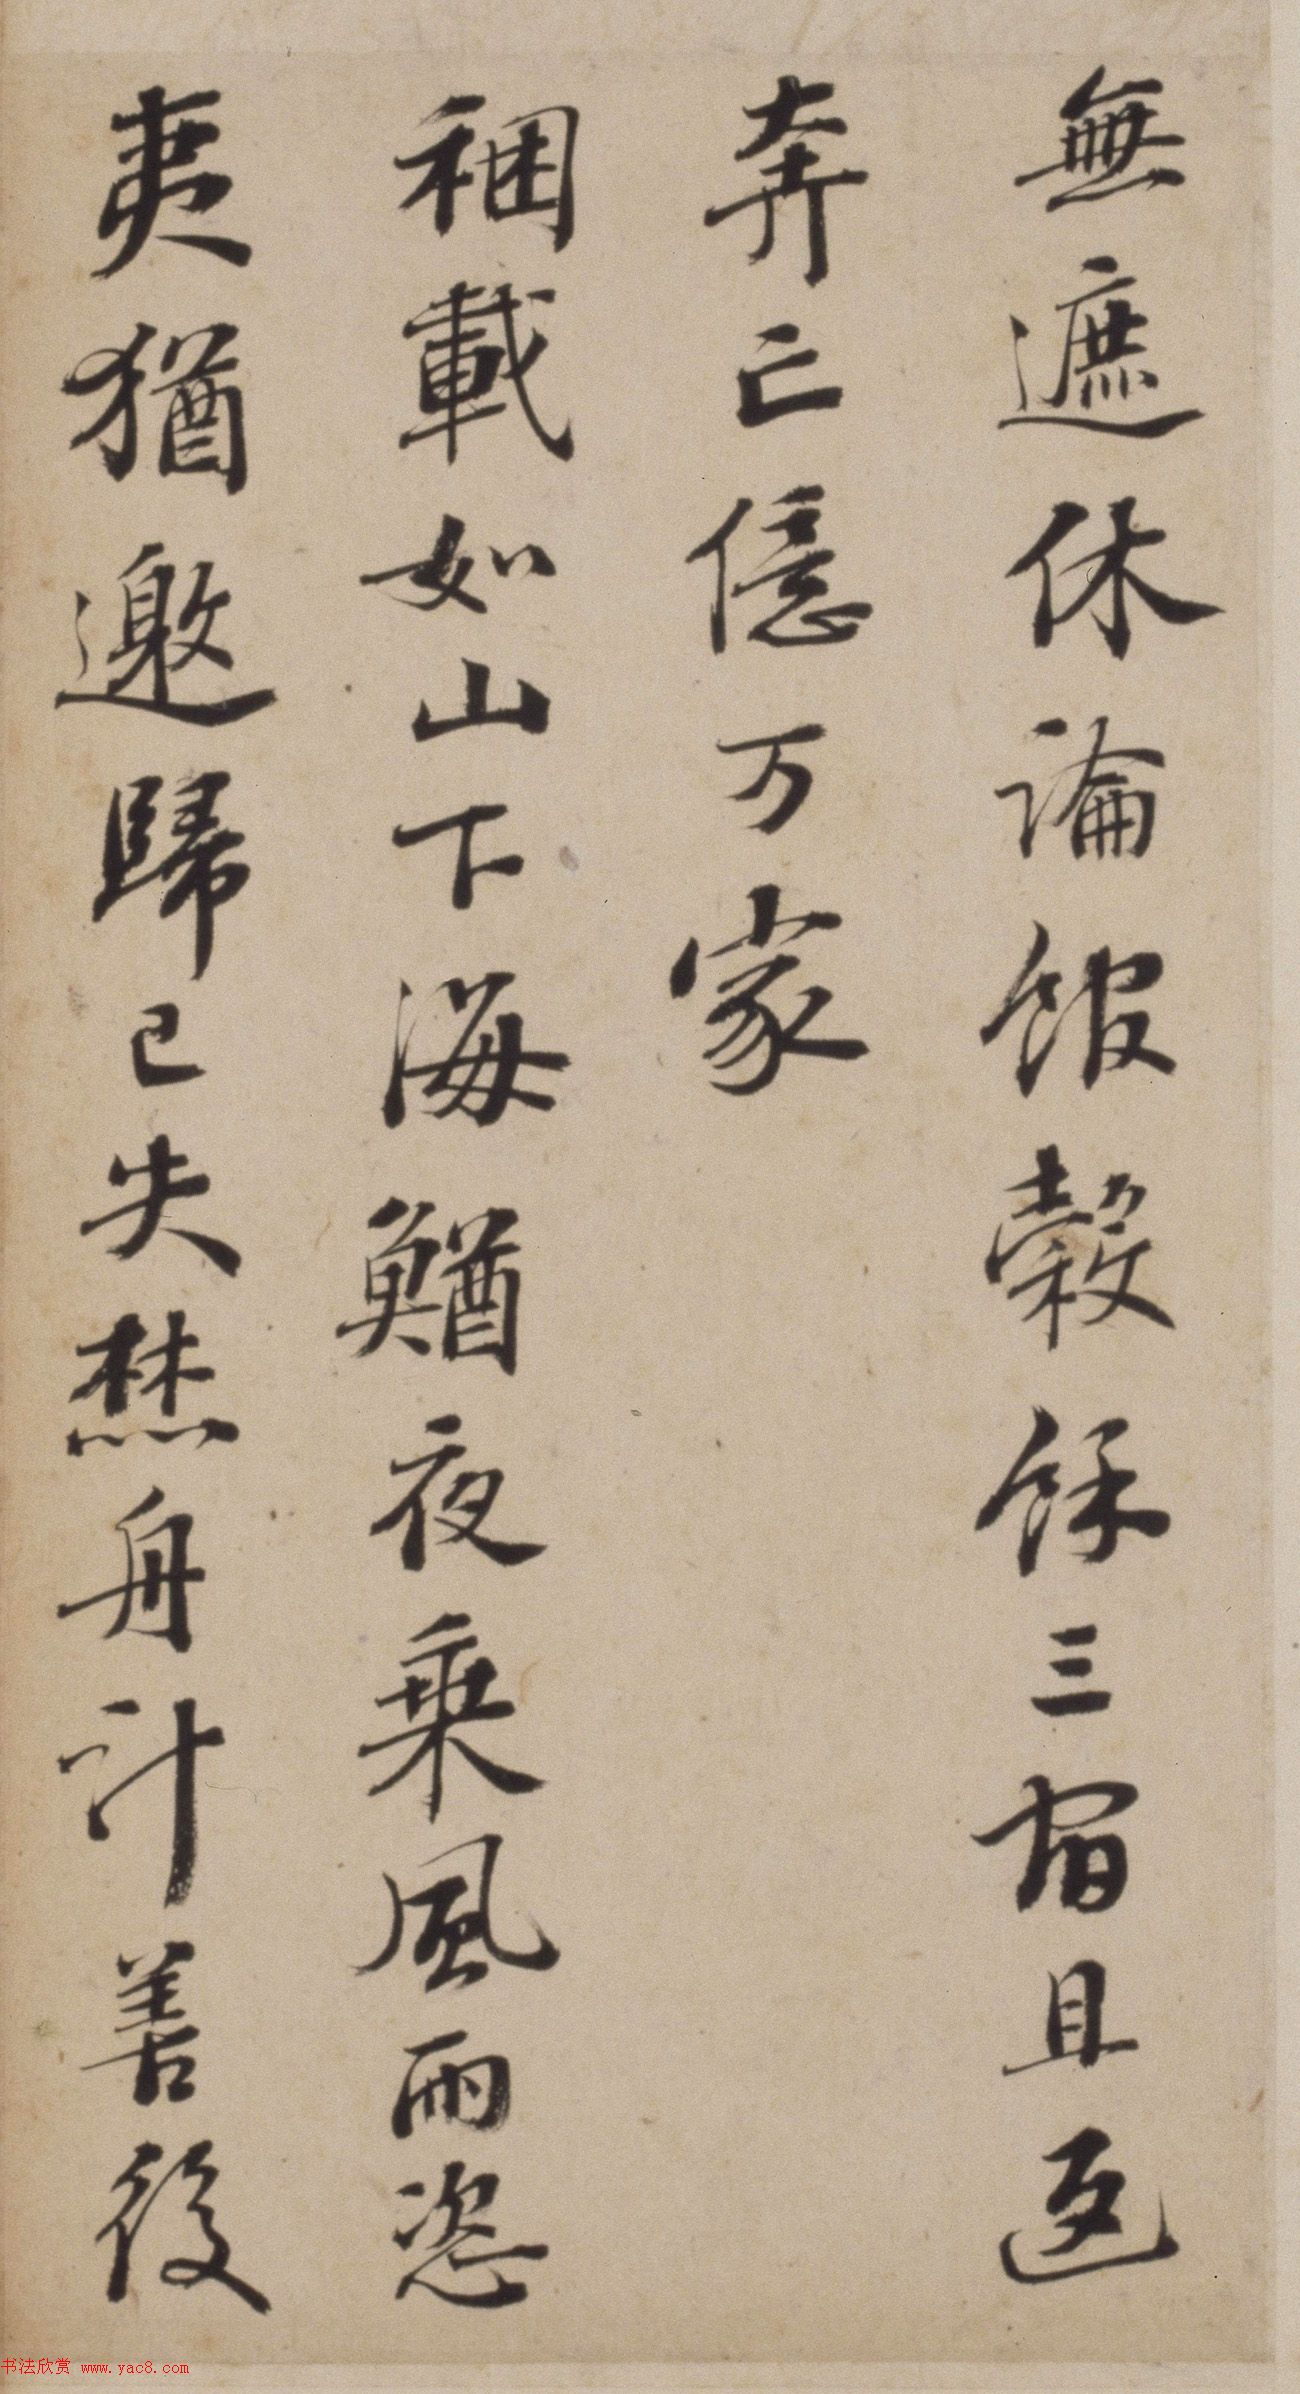 無遮休論館穀餘三宿且返
奔亡億万家
稇載如山下海鰌夜乘風雨恣
夷猶邀歸已失焚舟計善後
书法欣赏 www.yac8.com